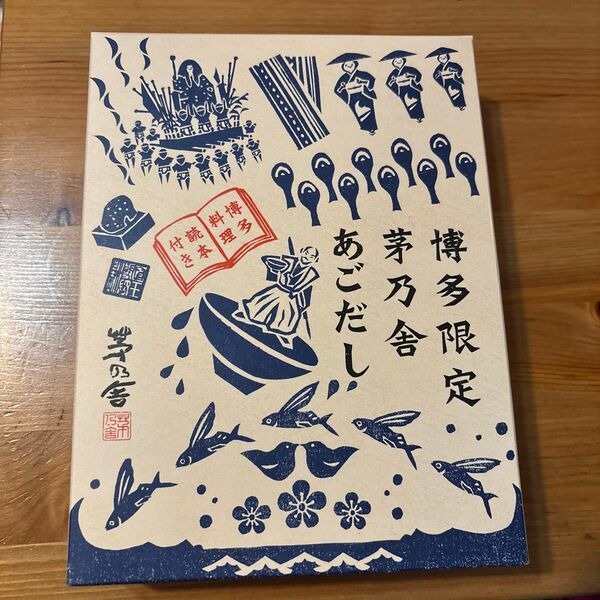 博多限定
茅乃舎
あごだし
博多
料理
読本
付き
茅乃舎
茅乃舎